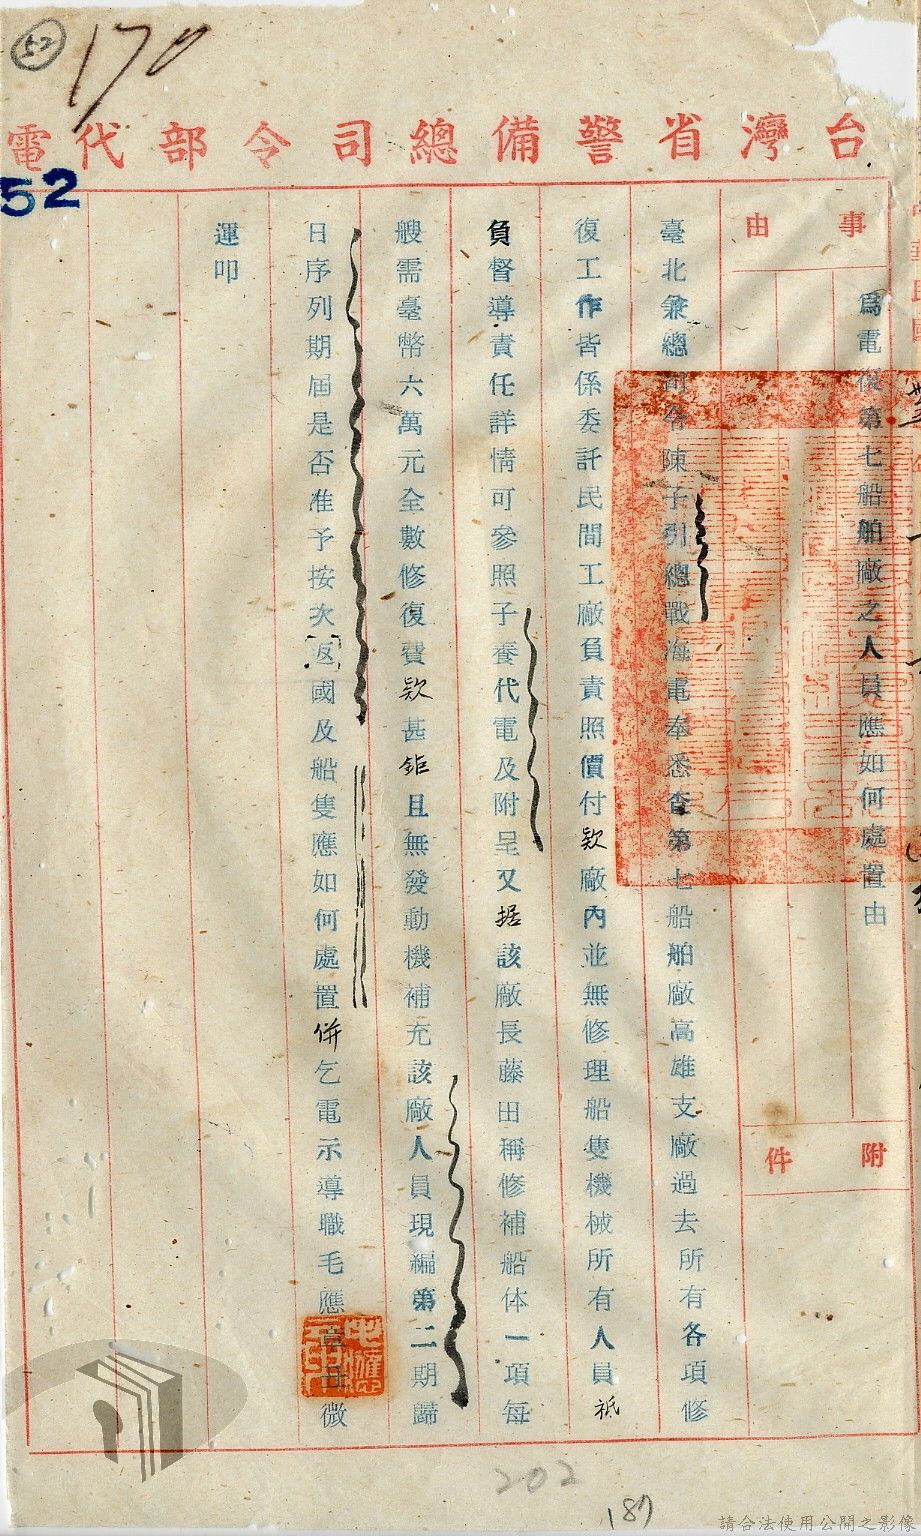 52
170
台灣省警備總司令部代電
52
事由
為電復第七船舶廠之人員應如何處置由
附件
臺北兼總司令陳子引總戰海電奉悉查第七船舶廠高雄支廠過去所有各項修
復工作皆係委託民間工廠負責照價付欵廠內並無修理船隻機械所有人員祗
負督導責任詳情可參照子養代電及附呈又据該廠長藤田稱修補船体一項每
艘需臺幣六萬元全數修復費欵甚鉅且無發動機補充該廠人員現編第二期歸
日序列期屆是否准予按次返國及船隻應如何處置併乞電示導職毛應章丑微
運叩
202
187
請合法使用公開之影像